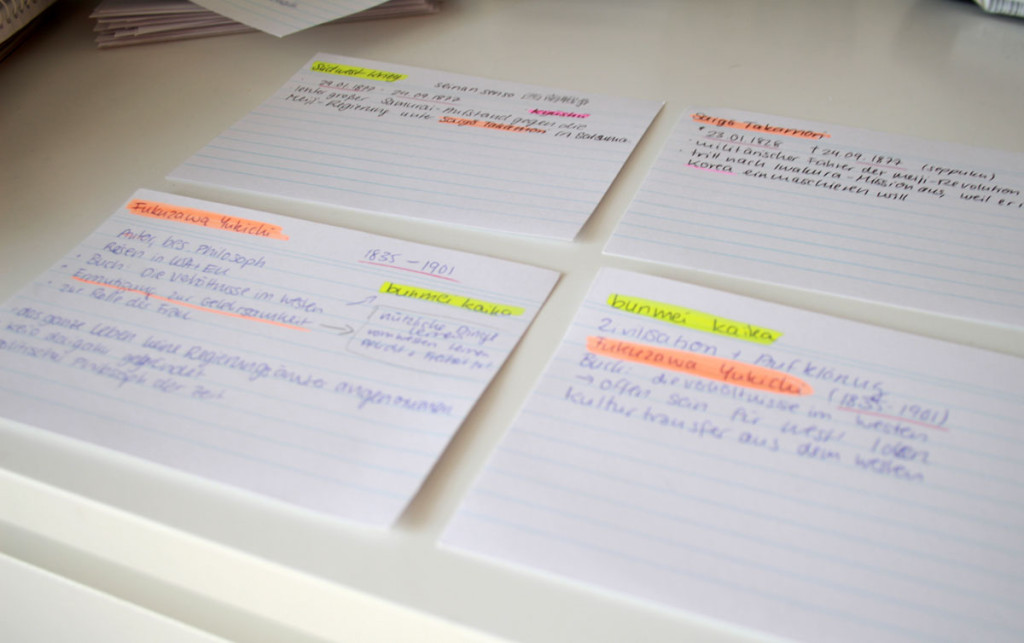 Südwest-Krieg seinan sensō
29.01.1877 - 24.09.1877 Kyūshū
Unter großer Samurai-Aufstand gegen die
Meiji-Regierung unter Saigō Takamori in Satsuma
Saigō Takamori
* 23.01.1828 † 24.09.1877 (seppuku)
· militärischer Führer der Meiji-Revolution
· tritt nach Iwakura-Mission aus, weil er i
Korea einmaschieren will
Fukuzawa Yukichi
1835 - 1901
Autor, bes. Philosoph
Reisen in USA + EU
· Buch: Die Verhältnisse im Westen
· Ermutigung zur Gelehrsamkeit
zur Rolle der Frau
bunmei kaika
nützliche Dinge
das ganze Leben keine Regierungsämter angenommen
Philosoph der Zeit
bunmei kaika
Zivilisation + Aufklärung
Fukuzawa Yukichi (1835-1901)
Buch: die Verhältnisse im Westen
→ offen sein für westl. Ideen
Kulturtransfer aus dem Westen